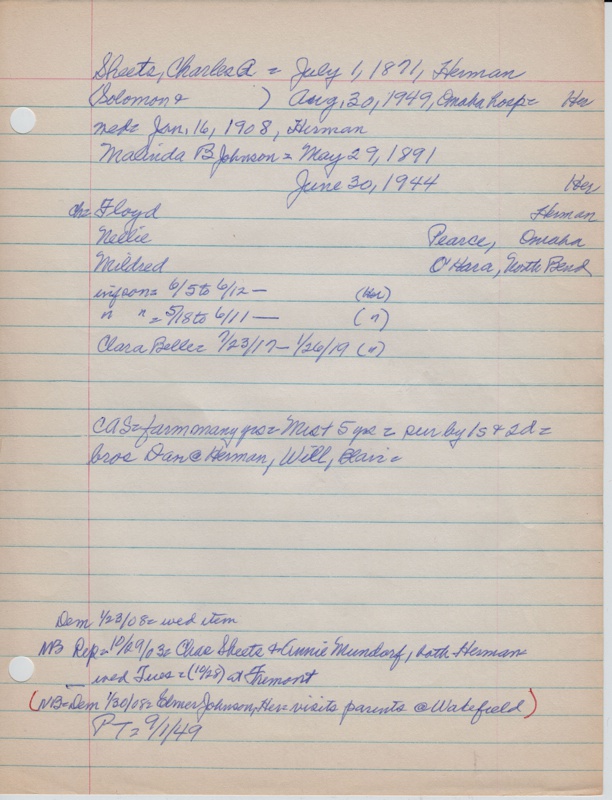 Sheets, Charles A = July 1, 1871, Herman
(Solomon & ) Aug, 30, 1949, Omaha hosp = Her
med = Jan, 16, 1908, Herman
Malinda B Johnson = May 29, 1891
June 30, 1944 Her
ch = Floyd Herman
Nellie Pearce, Omaha
Mildred O'Hara, North Bend
inf son = 6/5 to 6/12 — (Her)
" " = 5/18 to 6/11 — (")
Clara Belle = 7/23/17 — 1/26/19 (")
CAS = farm many yrs = Mist 5 yrs = sur by 1s & 2d =
bros Dan @ Herman, Will, Blair =
Dem 1/23/08 = wed item
NB Rep = 10/29/03 = Chas Sheets & Annie Mundorf, both Herman =
wed Tues = (10/28) at Fremont
(NB = Dem 1/30/08 = Elmer Johnson, Her = visits parents @ Wakefield)
PT = 9/1/49